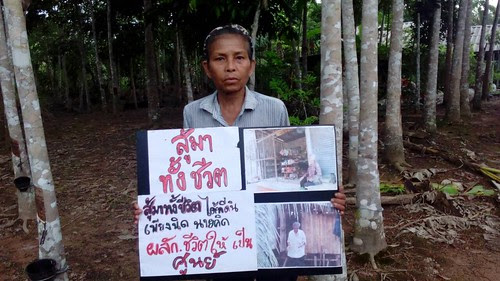 สู้มา
ทั้งชีวิต
สู้มาทั้งชีวิต ได้ที่ดิน
เพียงนิด นายคิด
ผลัก.ชีวิตให้ เป็น
ศูนย์